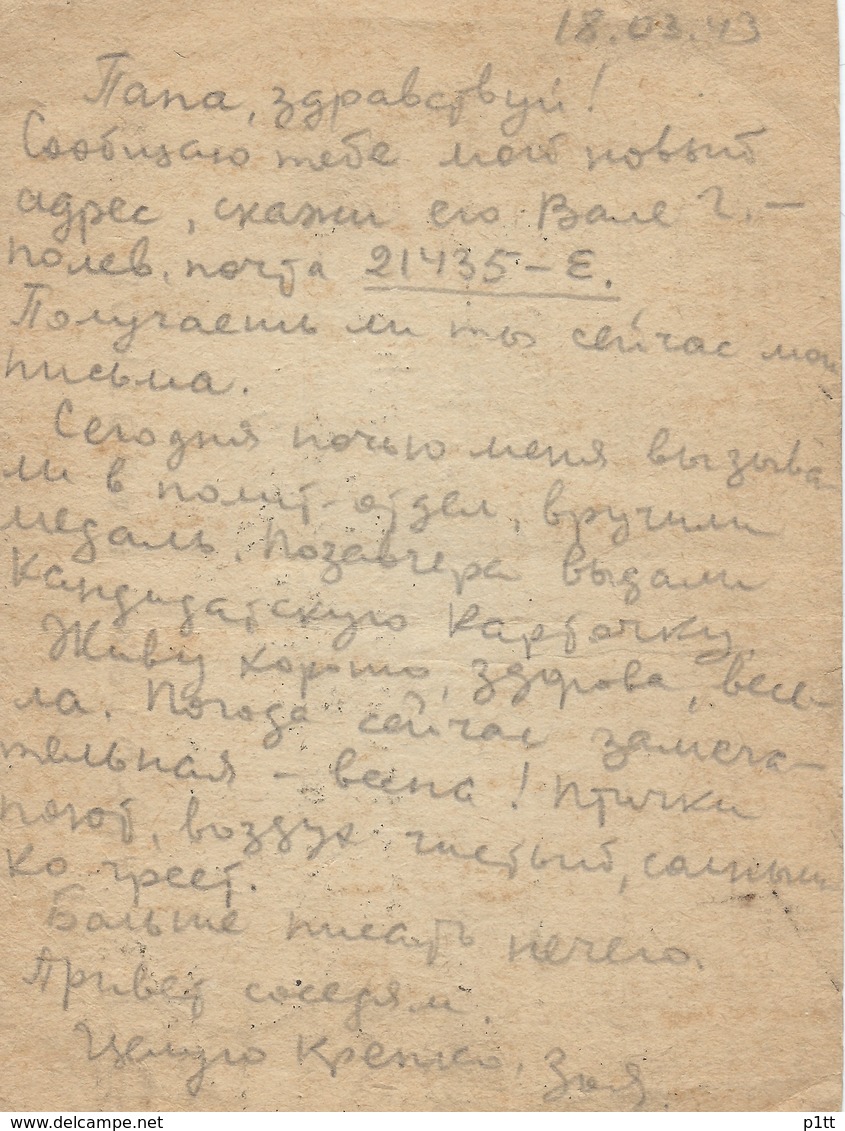 18.03.43
Папа, здравствуй!
Сообщаю тебе мой новый
адрес, скажи его Вале Г. –
полев. почта 21435 – Е.
Получаешь ли ты сейчас мои
письма.
Сегодня ночью меня вызыва-
ли в полит-отдел, вручили
медаль. Позавчера выдали
кандидатскую карточку.
Живу хорошо, здорова, весе-
ла. Погода сейчас замеча-
тельная – весна! Птички
поют, воздух чистый, солныш
ко греет.
Больше писать нечего.
Привет соседям.
Целую крепко. Зоя.
www.delcampe.net
p1tt